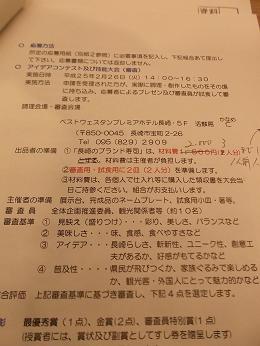 資料
○ 応募方法
所定の応募用紙(別紙2参照)に必要事項を記入し、下記組合あて提出し
て下さい。応募書類については返却しません。
○ アイデアコンテスト及び技能大会(審査)
実施日時 平成25年2月26日(火)14:00~16:30
実施方法 申請を受理された方が、実際に調理・創作したものをその場
に持ち込み、応募者によるプレゼン及び審査員が試食して審
査します。
調理会場・審査会場
ベストウェスタンプレミアホテル長崎・5F
(〒850-0045 長崎市宝町2-26
Tel 095(829)2909
2000
出品者の準備 ①「長崎のブランド寿司」は、材料費
とする。材料費は主催者が負担します。
②審査用・試食用に2回(2人分)を準備します。
③材料費は、各個人で仕入れ等に購入した領収書を大会当
日ご持参ください。組合がお支払いします。
主催者の準備 展示台、完成品のネームプレート、試食用小皿・箸等。
審査員 全体企画推進委員、観光関係者等(約10名)
審査基準 1) 見映え(盛りつけ)・・・彩り、美しさ、バランスなど
2) 美味しさ・・味、食感、食べやすさなど
3) アイデア・・・長崎らしさ、斬新性、ユニーク性、創意工
夫があるか、好感がもてるかなど
4) 普及性・・・・県民が飛びつくか、家族ぐるみで楽しめる
か、観光客・外国人にとって魅力的か
総合評価 上記審査基準に基づき審査し、下記4点を選定します。
彰 最優秀賞(1点)、金賞(2点)、審査員特別賞(1点)
(授賞者には、賞状及び副賞としてすし券を贈呈します)